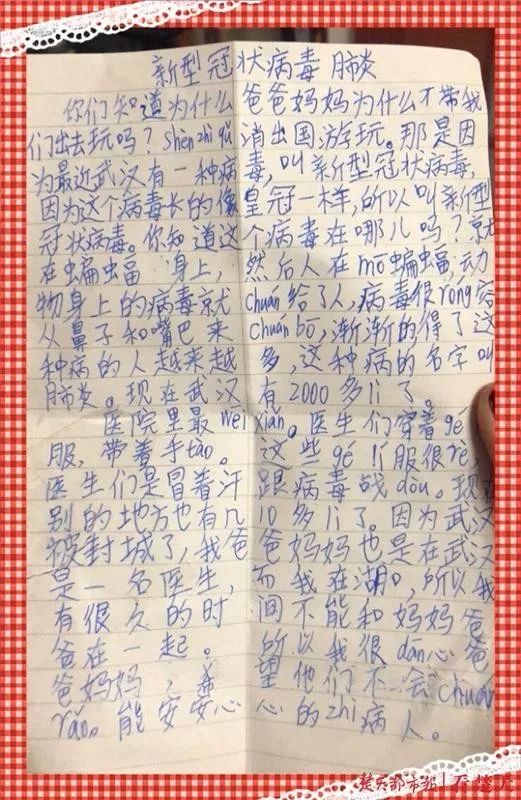 新型冠状病毒肺炎
你们知道为什么爸爸妈妈为什么不带我
们出去玩吗？shèn zhì qǔ消出国游玩。那是因
为最近武汉有一种病毒，叫新型冠状病毒，
因为这个病毒长的像皇冠一样，所以叫新型
冠状病毒。你知道这个病毒在哪儿吗？就
在蝙蝠身上，然后人在mō蝙蝠，动
物身上的病毒就chuán给了人，病毒很róng容
从鼻子和嘴巴来chuán bō，渐渐的得了这
种病的人越来越多，这种病的名字叫
肺炎。现在武汉有2000多li了。
医院里最wēi xiǎn。医生们穿着gé
服，带着手tào。这些gé lí服很rè，
医生们是冒着汗跟病毒战dòu。现在
别的地方也有几10多li了。因为武汉
被封城了，我爸爸妈妈也是在武汉
是一名医生，而我在湖口，所以我
有很久的时间不能和妈妈爸
爸在一起。所以我很dān心爸
爸妈妈，希望他们不会chuán
rǎn。能安安心心的zhì病人。
楚天都市报